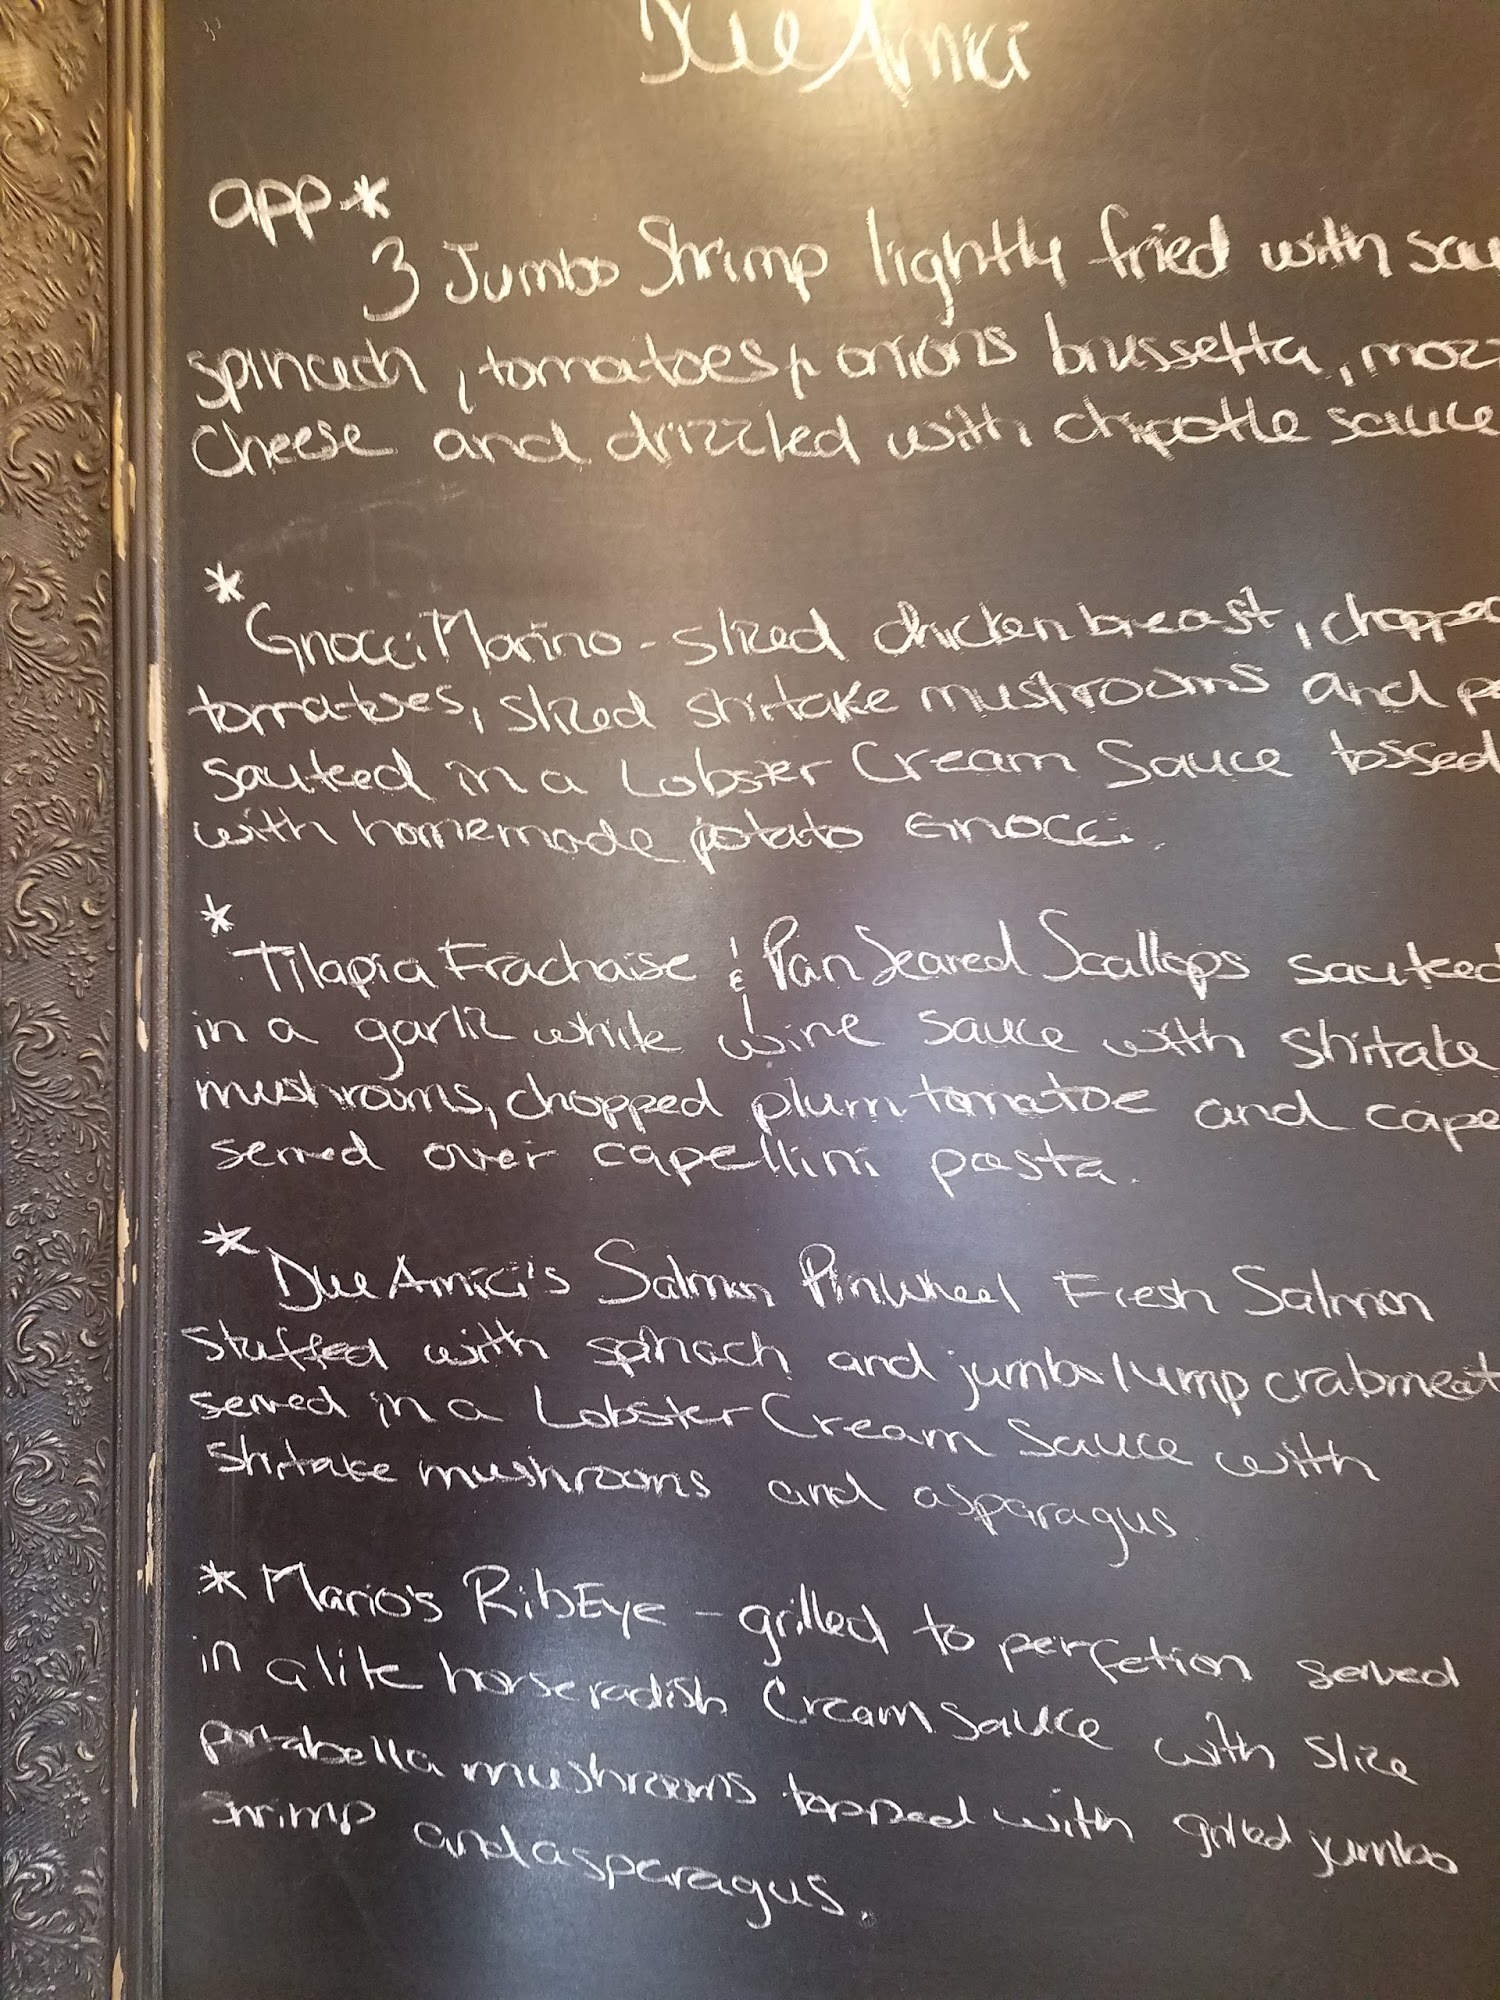 Due Amici
app*
3 Jumbo Shrimp lightly fried with sau
spinach, tomatoes, onions brussetta, mozz
cheese and drizzled with chipotle sauce
*
Gnocci Marino - sliced chicken breast, chopped
tomatoes, sliced shiitake mushrooms and p
sauteed in a Lobster Cream Sauce tossed
with homemade potato Gnocci.
*
Tilapia Frachaise & Pan Seared Scallops sauteed
in a garlic white wine sauce with shiitake
mushrooms, chopped plum tomatoe and cape
served over capellini pasta.
*
Due Amici's Salmon Pinwheel Fresh Salmon
stuffed with spinach and jumbo lump crabmeat
served in a Lobster Cream Sauce with
shiitake mushrooms and asparagus.
* Mario's RibEye - grilled to perfetion served
in a lite horseradish Cream sauce with slice
portabella mushrooms topped with grilled jumbo
shrimp and asparagus.